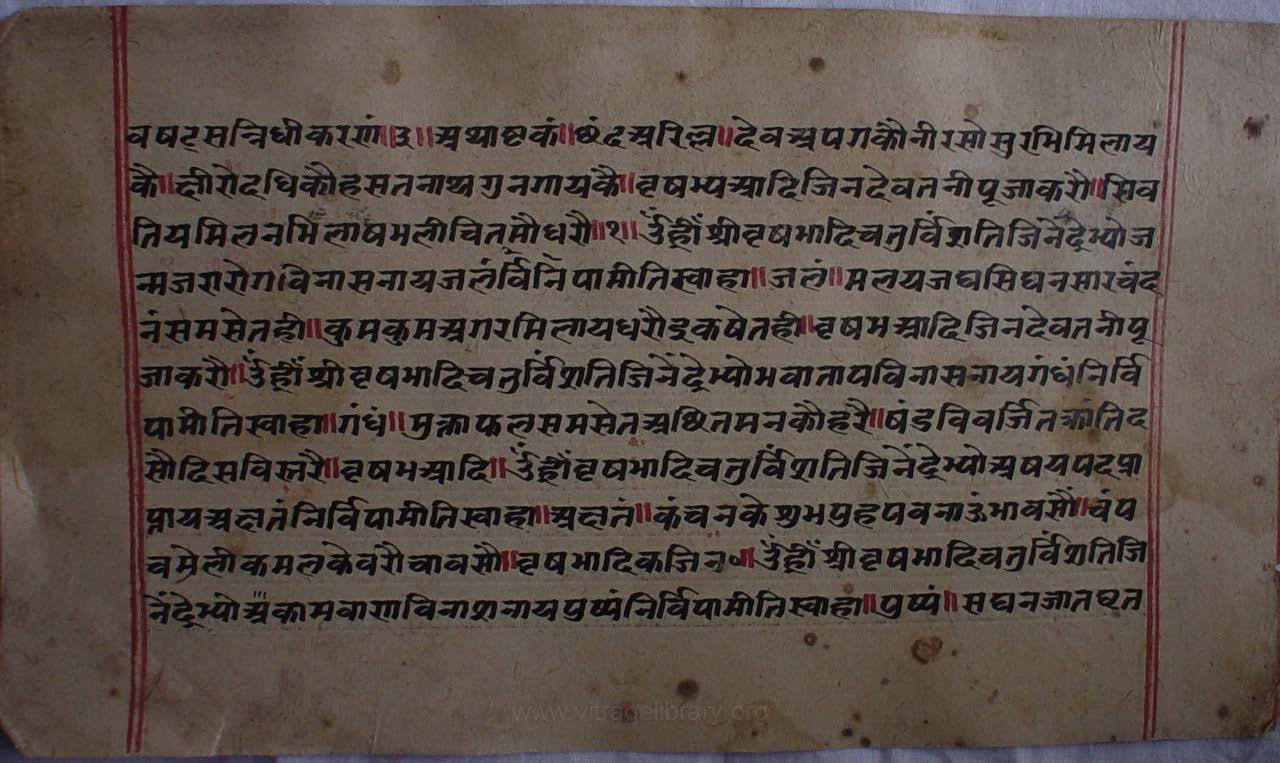 वषट्सन्निधीकरणं॥३॥अथाष्टकं॥छंदअरिल्ल॥देवअपगकौनीरसोसुरभिमिलाय
कै॥क्षीरोदधिकौहसतनाथगुनगायकै॥वृषभआदिजिनदेवतनीपूजाकरौ॥सिव
तियमिलनभिलाषमलीचितमौधरौ॥१॥ॐह्रीं श्रीवृषभादिचतुर्विंशतिजिनेंद्रेभ्योज
न्मजरारोगविनासनायजलंर्विनिपामीतिस्वाहा॥जलं॥मलयजघसिघनसारचंद
नंसमसेतही॥कुमकुमअगरमिलायधरौइकषेतही॥वृषभआदिजिनदेवतनीपू
जाकरौ॥ॐह्रीं श्रीवृषभादिचतुर्विंशतिजिनेंद्रेभ्योभवातापविनासनायगंधंनिर्वि
पामीतिस्वाहा॥गंधं॥मुक्ताफलसमसेतअछितमनकौहरै॥षंडविवर्जितक्रांतिद
सौदिसविस्तरै॥वृषभआदि॥ॐह्रींवृषभादिचतुर्विंशतिजिनेंद्रेभ्योअषयपदप्रा
प्तायअक्षतंनिर्विपामीतिस्वाहा॥अक्षतं॥कंचनकेशुभपुहपवनाऊंभावसौं॥चंप
चमेलीकमलकेवरौचावसौ॥वृषभादिकजिन०॥ॐह्रीं श्रीवृषभादिचतुर्विंशतिजि
नेंद्रेभ्योकामवाणविनाशनायपुष्पंनिर्विपामीतिस्वाहा॥पुष्पं॥सघनजातघृत
www.vitragelibrary.org